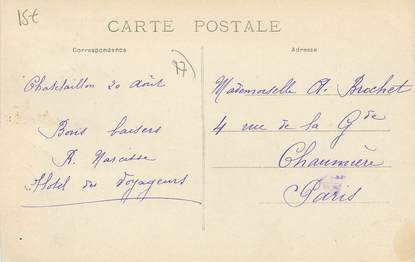 15€
CARTE POSTALE
Correspondance
Adresse
17)
Chatelaillon 20 Août
Bons baisers
R. Narcisse
Hotel des Voyageurs
Mademoiselle A. Bruchet
4 rue de la Gde
Chaumière
Paris